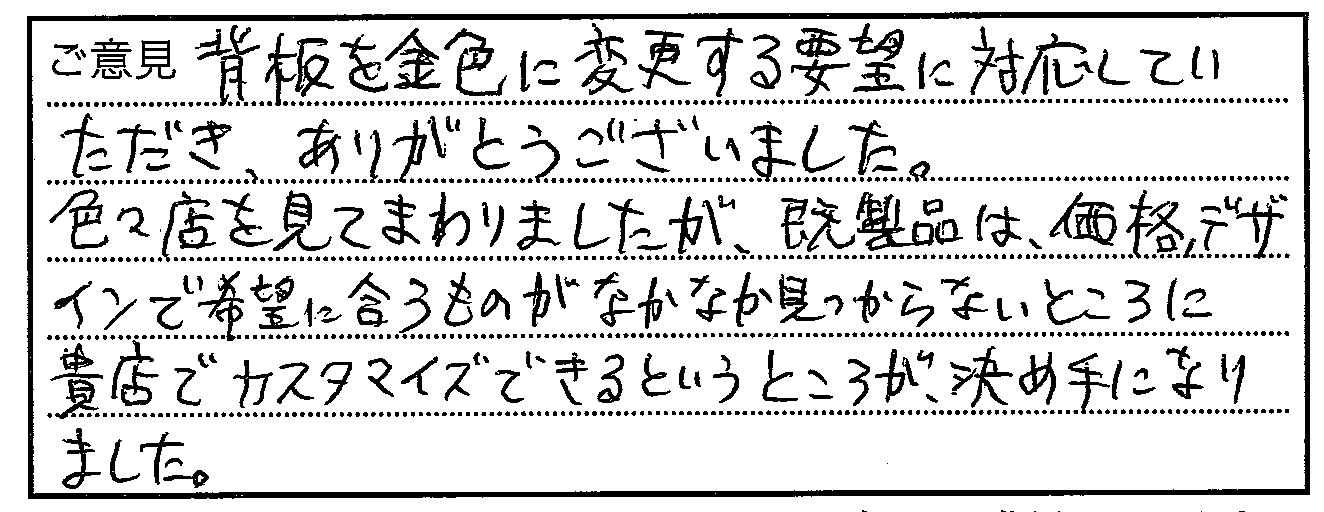 ご意見 背板を金色に変更する要望に対応してい
ただき、ありがとうございました。
色々店を見てまわりましたが、既製品は、価格、デザ
インで希望に合うものがなかなか見つからないところに
貴店でカスタマイズできるというところが、決め手になり
ました。